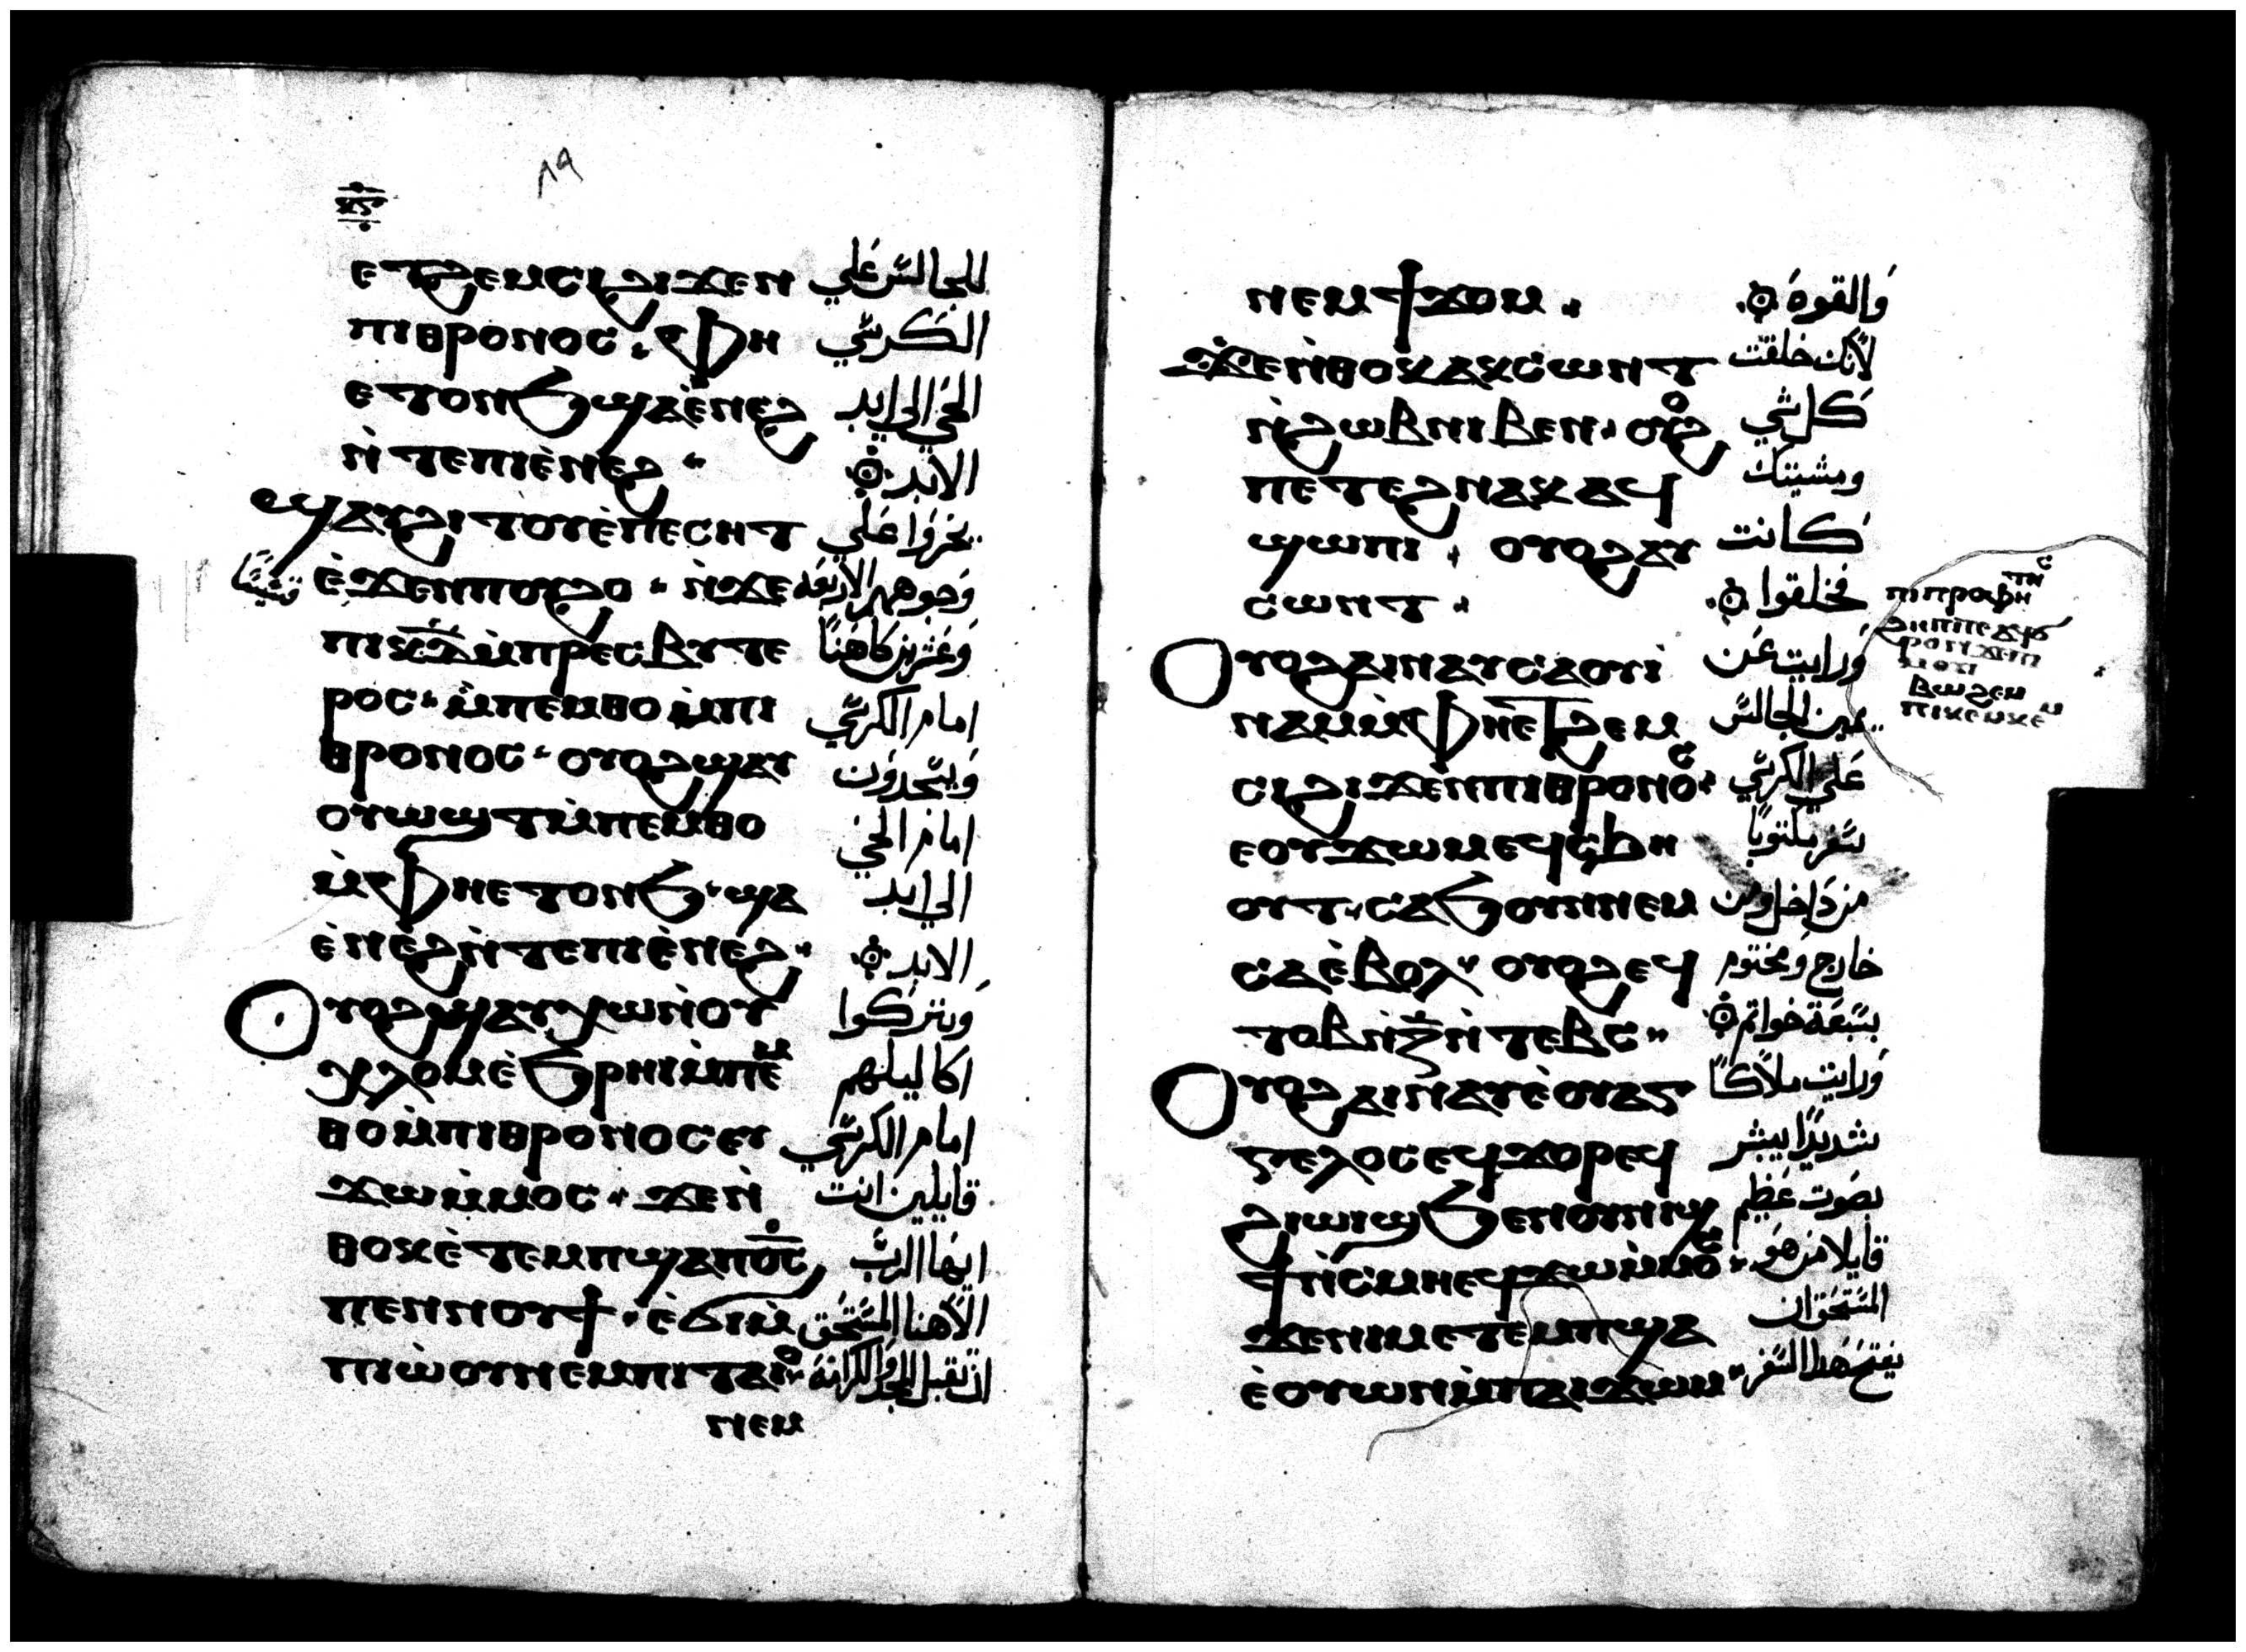 ⲕ̅ⲋ̅
٨٩
ⲉⲧϩⲉⲙⲥⲓϩⲓϫⲉⲛ للجالس علي
ⲡⲓⲑⲣⲟⲛⲟⲥ. ⲫⲏ الكرسي
ⲉⲧⲟⲛϧϣⲁⲉ̀ⲛⲉϩ الحي الي ابد
ⲛ̀ⲧⲉⲡⲓⲉ̀ⲛⲉϩ الابد
ϣⲁⲩϩⲓⲧⲟⲩⲉ̀ⲡⲉⲥⲏⲧ يخروا علي
ⲉ̀ϫⲉⲛⲡⲟⲩϩⲟ ⲛ̀ϫⲉ وجوههم الاربعة
ⲡⲓⲕ̅ⲇ̅ⲙ̀ⲡⲣⲉⲥⲃⲩⲧⲉ وعشرين كاهنًا
ⲣⲟⲥ ⲙ̀ⲡⲉⲙⲑⲟ ⲙ̀ⲡⲓ امام الكرسي
ⲑⲣⲟⲛⲟⲥ ⲟⲩⲟϩϣⲁⲩ ويسجدون
ⲟⲩⲱϣⲧⲙ̀ⲡⲉⲙⲑⲟ امام الحي
ⲙ̀ⲫⲏⲉⲧⲟⲛϧ ϣⲁ الي ابد
ⲉ̀ⲛⲉϩⲛ̀ⲧⲉⲡⲓⲉ̀ⲛⲉϩ الابد
ⲟⲩⲟϩϣⲁⲩⲭⲱⲛ̀ⲟⲩ ويتركوا
ⲭⲗⲟⲙⲉ̀ϧⲣⲏⲓⲙ̀ⲡⲉⲙ اكاليلهم
ⲑⲟⲙ̀ⲡⲓⲑⲣⲟⲛⲟⲥⲉⲩ امام الكرسي
ϫⲱⲙ̀ⲙⲟⲥ ϫⲉⲛ̀ قايلين انت
ⲑⲟⲕⲉ̀ⲧⲉⲙⲡϣⲁⲡⲟ̅ⲥ̅ ايها الرب
ⲡⲉⲛⲛⲟⲩϯ ⲉ̀ϭⲓⲙ̀ الاهنا المستحق
ⲡⲓⲱ̀ⲟⲩⲛⲉⲙⲡⲓⲧⲁⲓⲟ ان تقبل المجد والكرامة
ⲛⲉⲙ
ⲛⲉⲙϯϫⲟⲙ والقوة
ϫⲉⲛ̀ⲑⲟⲕⲁⲕⲥⲱⲛⲧ لأنك خلقت
ⲛ̀ϩⲱⲃⲛⲓⲃⲉⲛ ⲟⲩⲟϩ كل شي
ⲡⲉⲧⲉϩⲛⲁⲕⲁϥ ومشيتك
ϣⲱⲡⲓ ⲟⲩⲟϩⲁⲩ كانت
ⲥⲱⲛⲧ فخلقوا
ⲟⲩⲟϩⲁⲓⲛⲁⲩⲥⲁⲟⲩⲓ̀ ورايت عن
ⲛⲁⲙⲙ̀ⲫⲏⲉⲧϩⲉⲙ يمين الجالس
ⲥⲓϩⲓϫⲉⲛⲡⲓⲑⲣⲟⲛⲟⲥ علي الكرسي
ⲉⲟⲩϫⲱⲙⲉϥⲥϧⲏ سفر مكتوبًا
ⲟⲩⲧ ⲥⲁϧⲟⲩⲛⲛⲉⲙ من داخل ومن
ⲥⲁⲉ̀ⲃⲟⲗ ⲟⲩⲟϩⲉϥ خارج ومختوم
ⲧⲟⲃⲛ̀ⲍ̅ⲛ̀ⲧⲉⲃⲥ بسبعة خواتم
ⲟⲩⲟϩⲁⲓⲛⲁⲩⲉ̀ⲟⲩⲁⲅ ورايت ملاكًا
ⲅⲉⲗⲟⲥⲉϥϫⲟⲣⲉϥ شديدًا يبشر
ϩⲓⲱⲓϣϧⲉⲛⲟⲩⲛⲓϣ بصوت عظيم
ϯⲛ̀ⲥⲙⲏⲉϥϫⲱⲙ̀ⲙⲟⲥ قايلا من هو
ϫⲉⲛⲓⲙⲉⲧⲉⲙⲡϣⲁ المستحق ان
ⲉ̀ⲟⲩⲱⲛⲙ̀ⲡⲁⲓϫⲱⲙ يفتح هذا السفر
ⲡⲓⲡⲣⲟⲫⲏⲧⲏⲥ